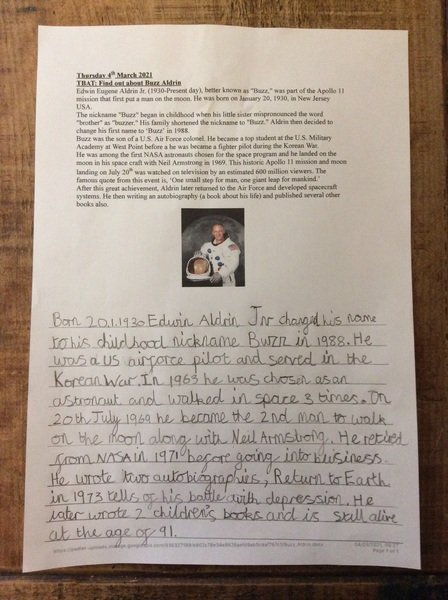 Thursday 4th March 2021
TBAT: Find out about Buzz Aldrin
Edwin Eugene Aldrin Jr. (1930-Present day), better known as "Buzz," was part of the Apollo 11
mission that first put a man on the moon. He was born on January 20, 1930, in New Jersey
USA.
The nickname "Buzz" began in childhood when his little sister mispronounced the word
"brother" as "buzzer." His family shortened the nickname to "Buzz." Aldrin then decided to
change his first name to 'Buzz' in 1988.
Buzz was the son of a U.S. Air Force colonel. He became a top student at the U.S. Military
Academy at West Point before a he was became a fighter pilot during the Korean War.
He was among the first NASA astronauts chosen for the space program and he landed on the
moon in his space craft with Neil Armstrong in 1969. This historic Apollo 11 mission and moon
landing on July 20th was watched on television by an estimated 600 million viewers. The
famous quote from this event is, 'One small step for man, one giant leap for mankind.'
After this great achievement, Aldrin later returned to the Air Force and developed spacecraft
systems. He then writing an autobiography (a book about his life) and published several other
books also.
Born 20.1.1930 Edwin Aldrin Jnr changed his name
to his childhood nickname Buzz in 1988. He
was a US airforce pilot and served in the
Korean War. In 1963 he was chosen as an
astronaut and walked in space 3 times. On
20th July 1969 he became the 2nd man to walk
on the moon along with Neil Armstrong. He retired
from NASA in 1971 before going into business.
He wrote two autobiographies, Return to Earth
in 1973 tells of his battle with depression. He
later wrote 2 children's books and is still alive
at the age of 91.
Page 1 of 1